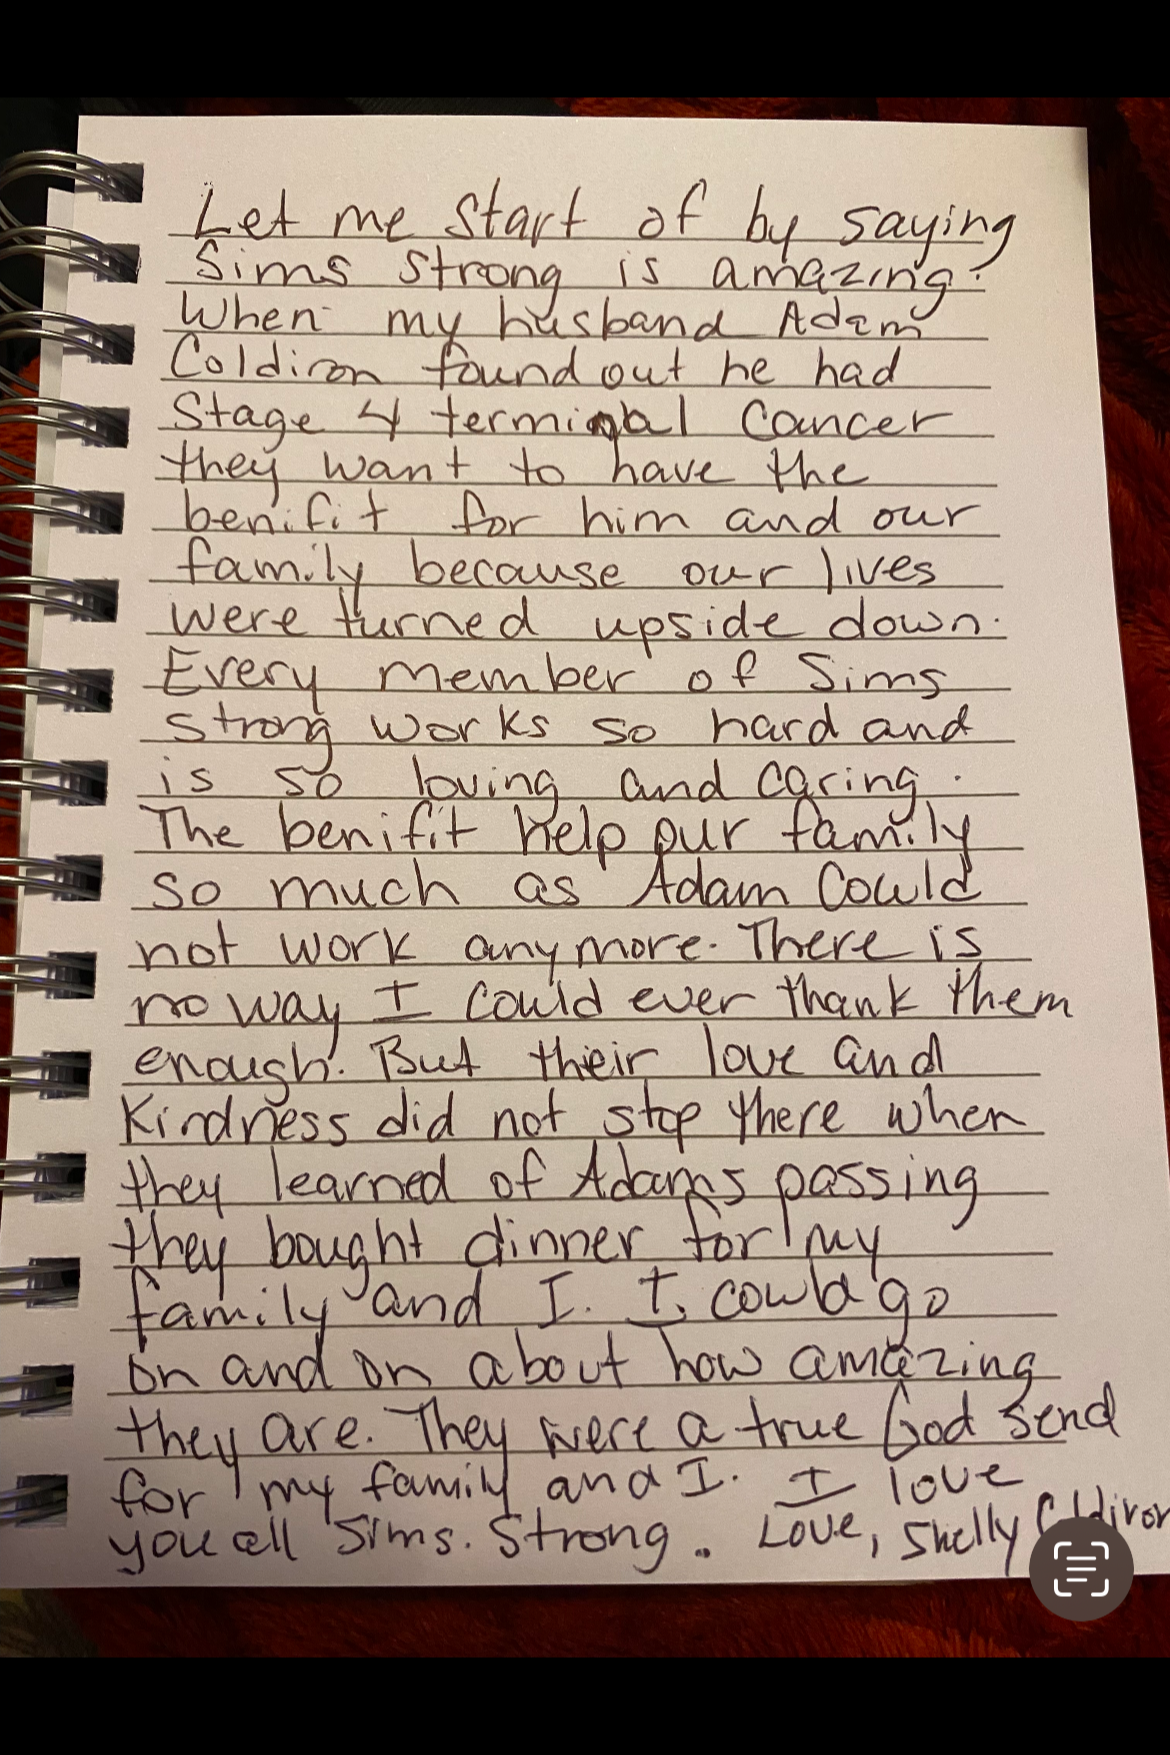 Let me start of by saying
Sims Strong is amazing.
When my husband Adam
Coldiron found out he had
Stage 4 terminal Cancer
they want to have the
benifit for him and our
family because our lives
were turned upside down.
Every member of Sims
Strong works so hard and
is so loving and caring.
The benifit help our family
so much as Adam Could
not work anymore. There is
no way I could ever thank them
enough. But thier love and
Kindness did not stop there when
they learned of Adams passing
they bought dinner for my
family and I. I could go
on and on about how amazing
they are. They were a true God send
for my family and I. I love
you all Sims. Strong. Love, Shelly Coldiron